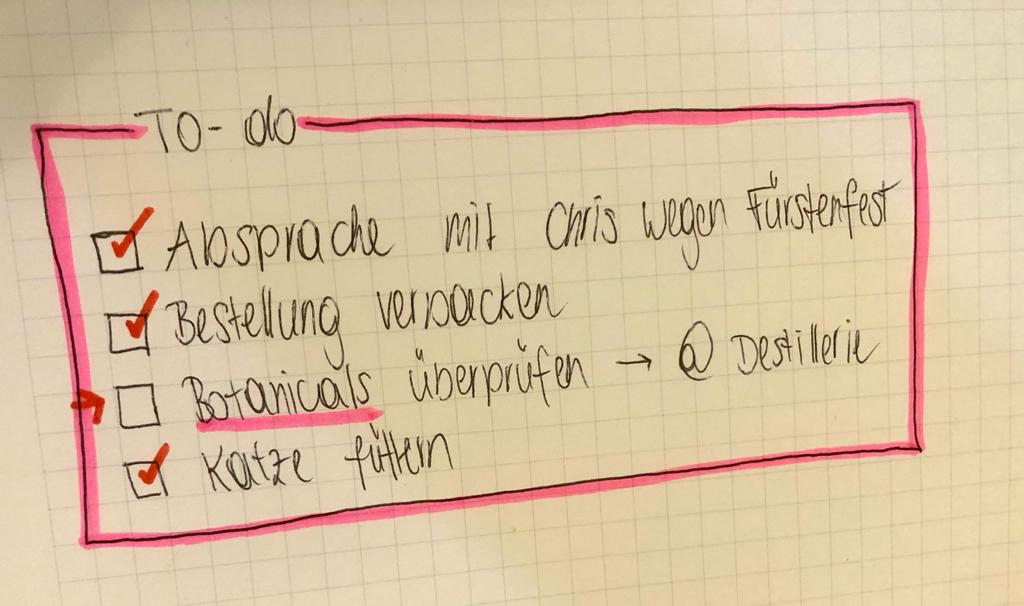 To-do
Absprache mit Chris wegen Fürstenfest
Bestellung verpacken
Botanicals überprüfen → @ Destillerie
Katze füttern